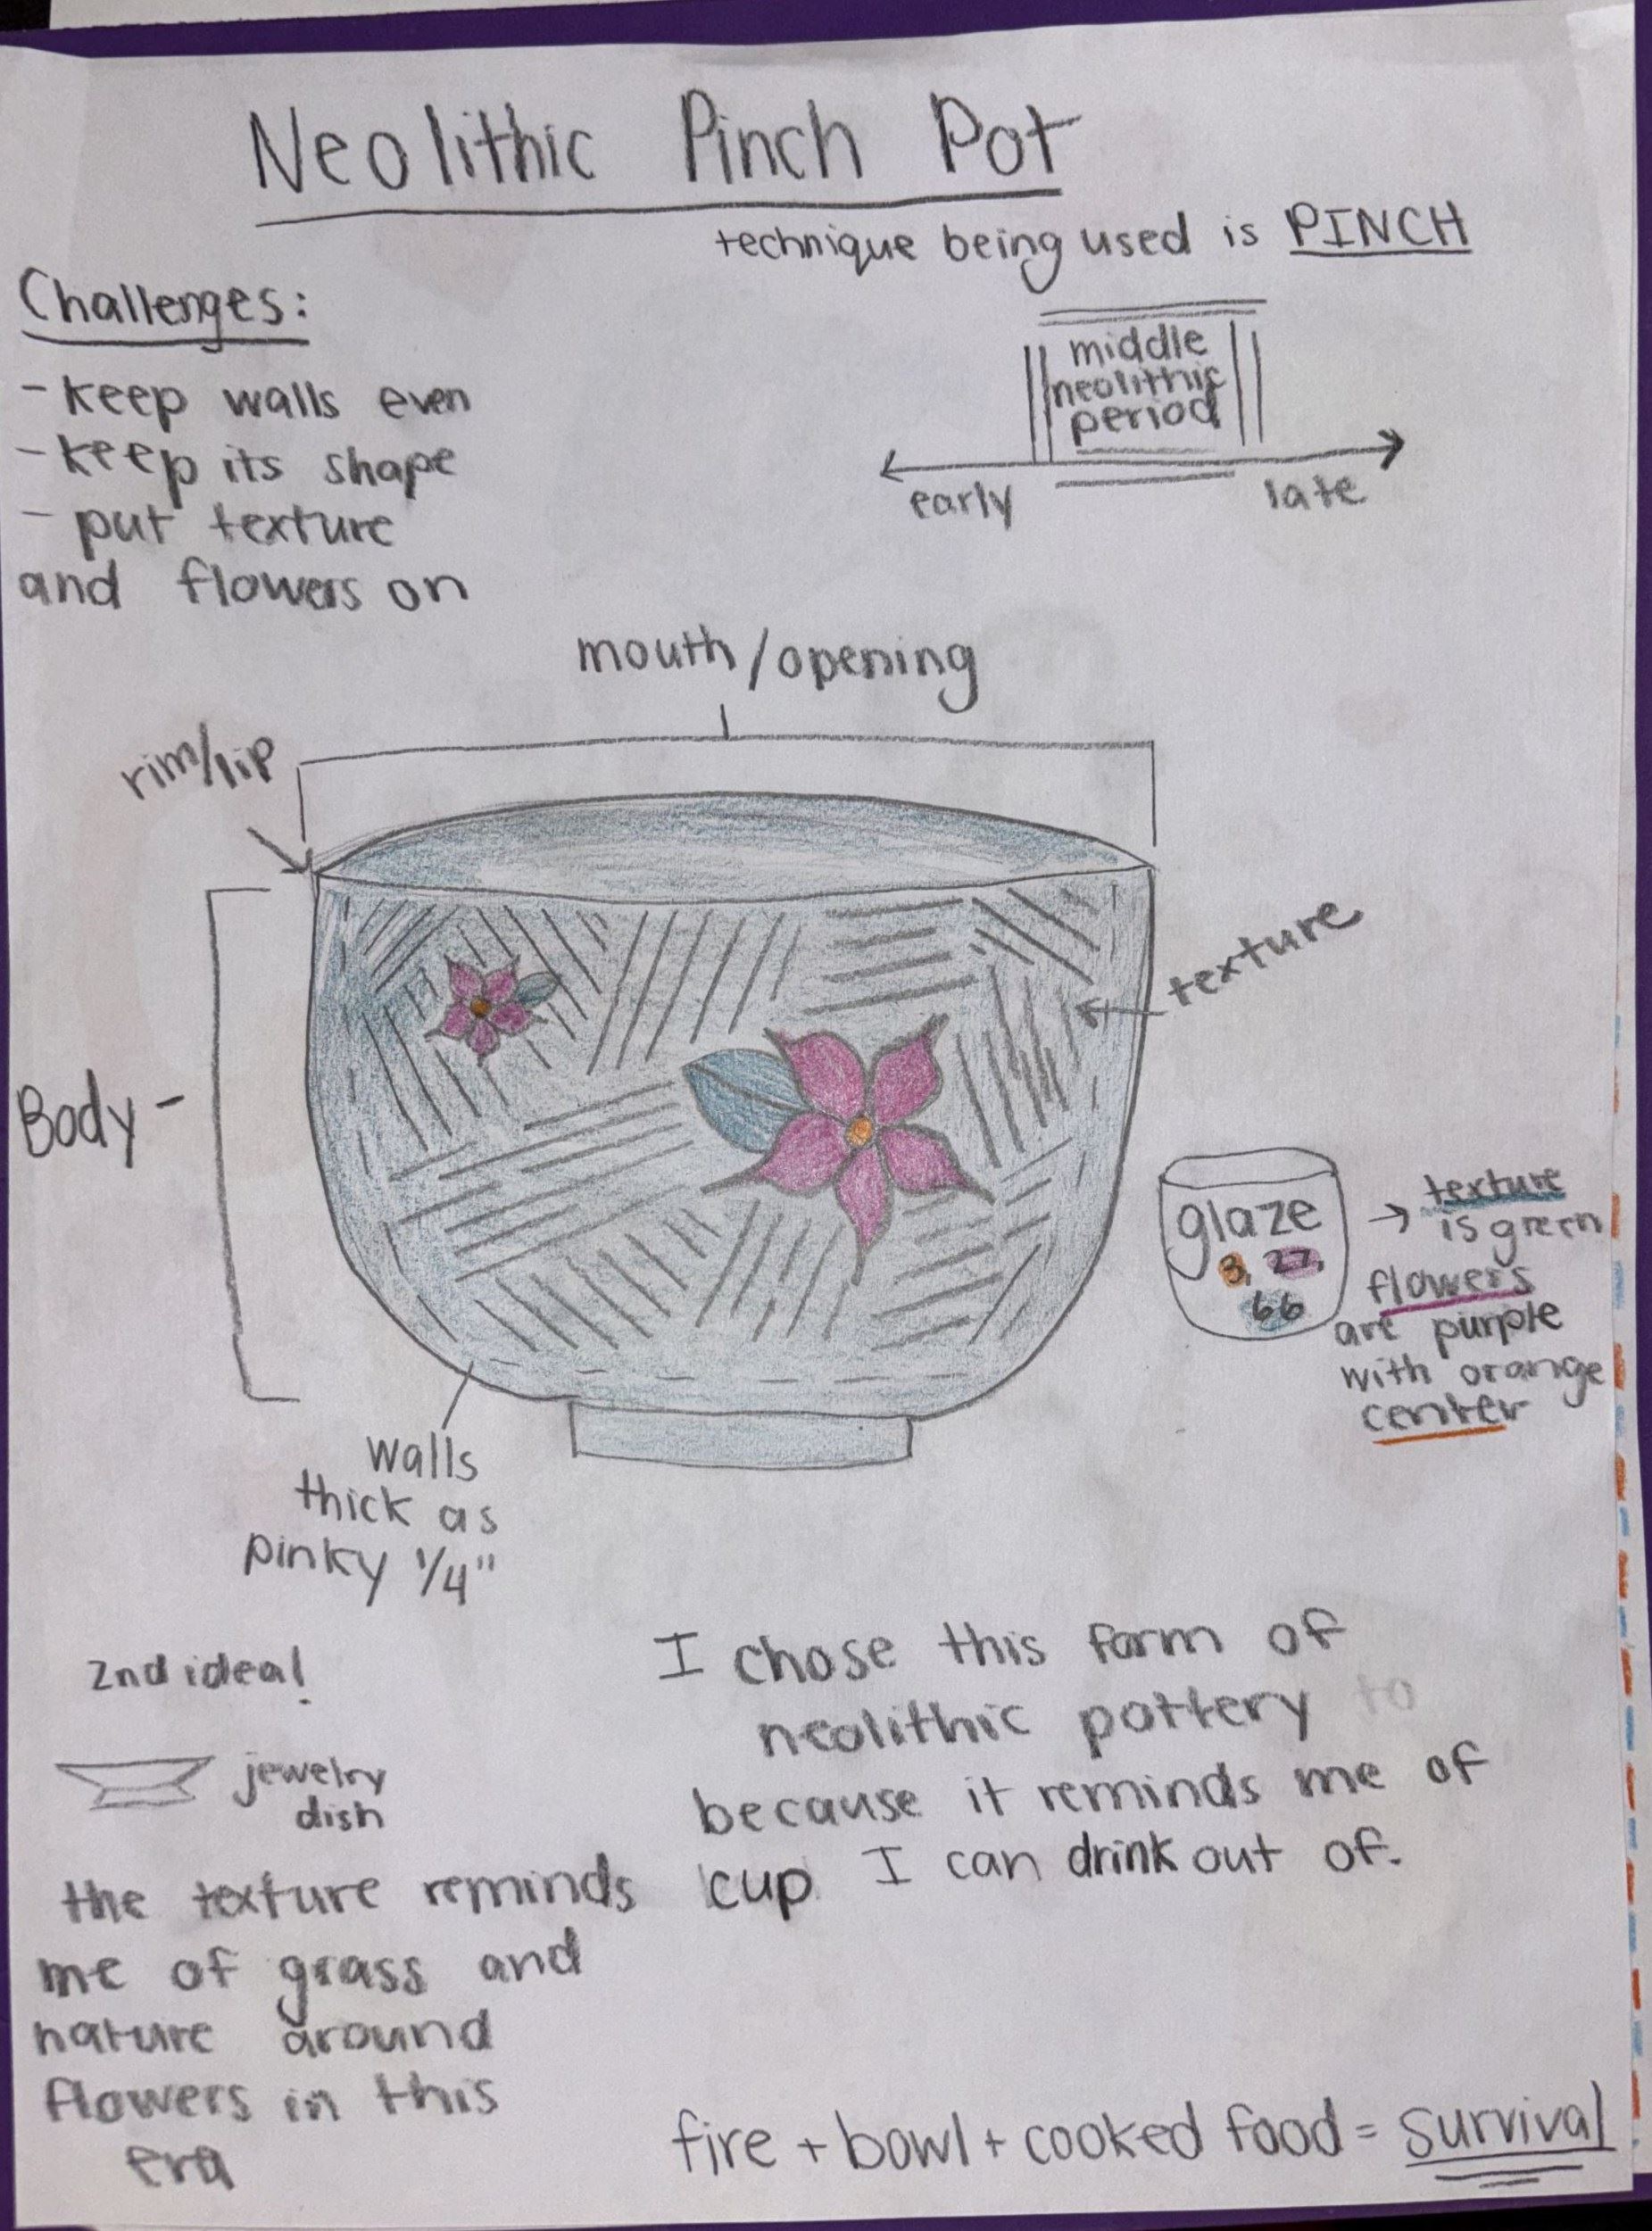 Neolithic Pinch Pot
technique being used is PINCH
Challenges:
- keep walls even
- keep its shape
- put texture
and flowers on
middle
neolithic
period
early
late
mouth/opening
rim/lip
texture
Body -
glaze
3, 27,
66
→ texture
is green
flowers
are purple
with orange
center
walls
thick as
pinky 1/4"
2nd idea!
jewelry
dish
I chose this form of
neolithic pottery to
because it reminds me of
cup I can drink out of.
the texture reminds
me of grass and
nature around
flowers in this
era
fire + bowl + cooked food = survival